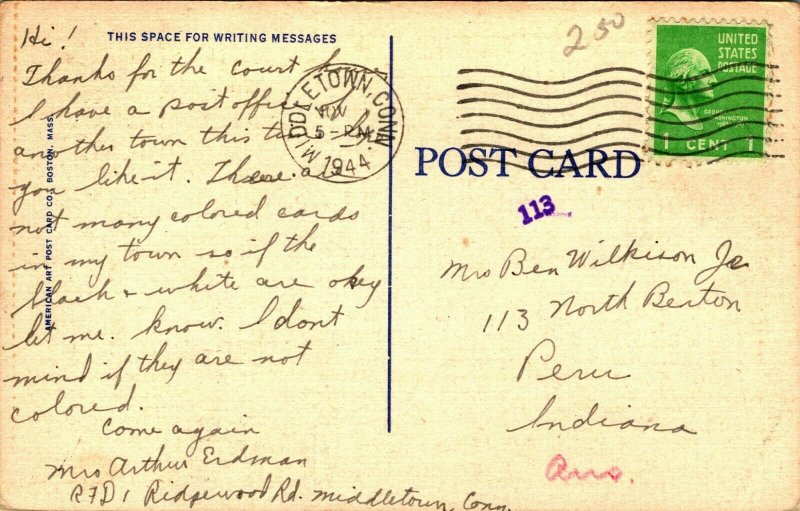 Hi!
THIS SPACE FOR WRITING MESSAGES
Thanks for the court
I have a post office
another town this
you like it. There are
not many colored cards
in my town so if the
black & white are okey
let me. know. I dont
mind if they are not
colored.
Come again
Mrs Arthur Erdman
RFD 1 Ridgewood Rd. Middletown, Conn.
AMERICAN ART POST CARD CO., BOSTON, MASS.
MIDDLETOWN, CONN.
NOV
5 - PM
1944
250
UNITED
STATES
POSTAGE
GEORGE
WASHINGTON
1 CENT 1
POST CARD
113
Mrs Ben Wilkison Jr
113 North Benton
Peru
Indiana
Ans.